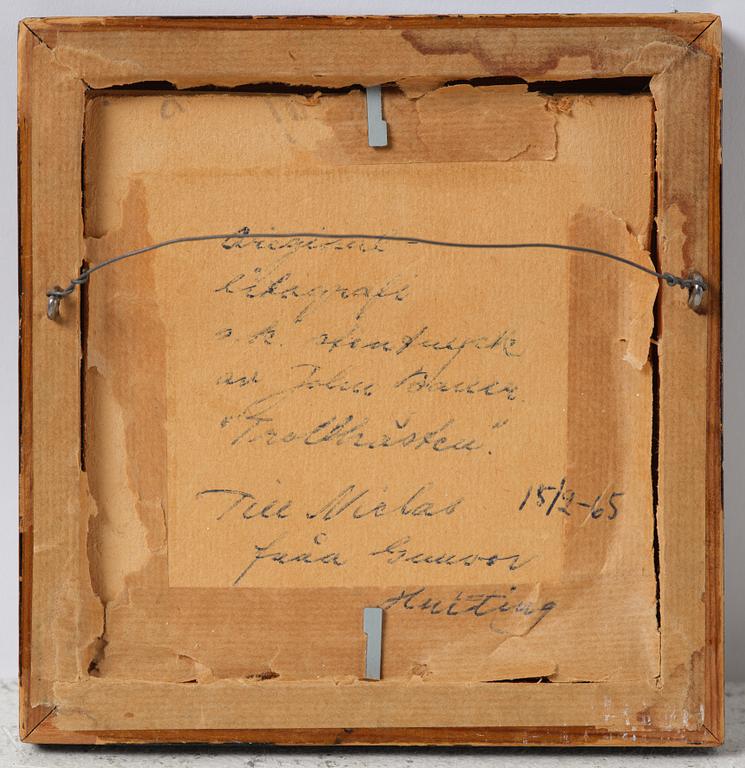 Original-
litografi
s.k. stentryck
av John Bauer.
"Trollhästen".
Till Niclas 15/2-65
från Gunvor
Hutting